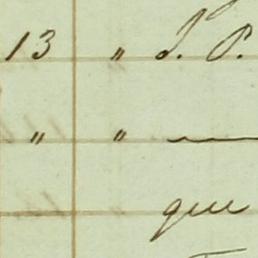 13 " J. P.
" " —
que